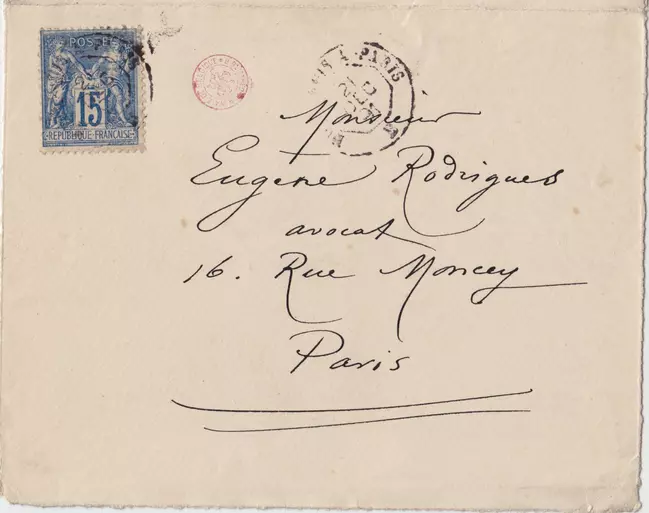 POSTES
15
REPUBLIQUE FRANÇAISE
PARIS
Monsieur
Eugène Rodrigues
avocat
16. Rue Moncey
Paris